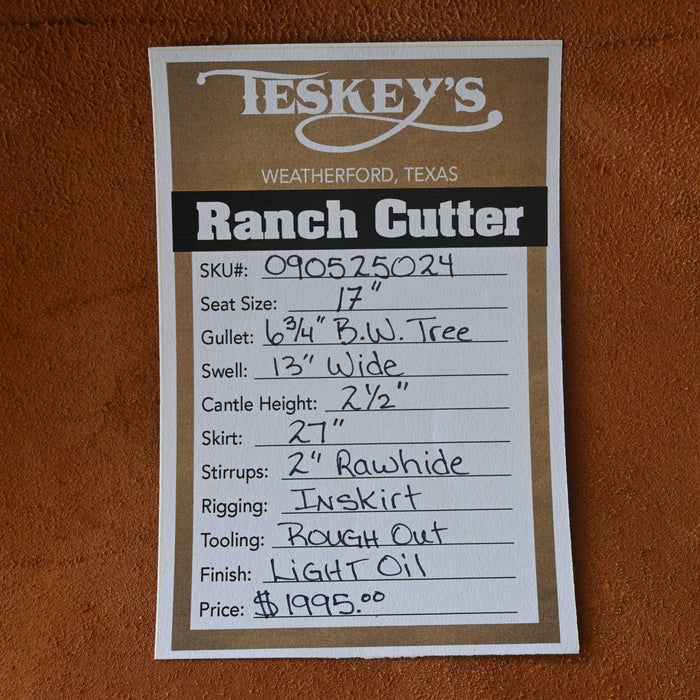 TESKEY'S
WEATHERFORD, TEXAS
Ranch Cutter
SKU#: 090525024
Seat Size: 17"
Gullet: 6 3/4" B.W. Tree
Swell: 13" Wide
Cantle Height: 2 1/2"
Skirt: 27"
Stirrups: 2" Rawhide
Rigging: INSKIRT
Tooling: ROUGH OUT
Finish: LIGHT OIL
Price: $1995.00